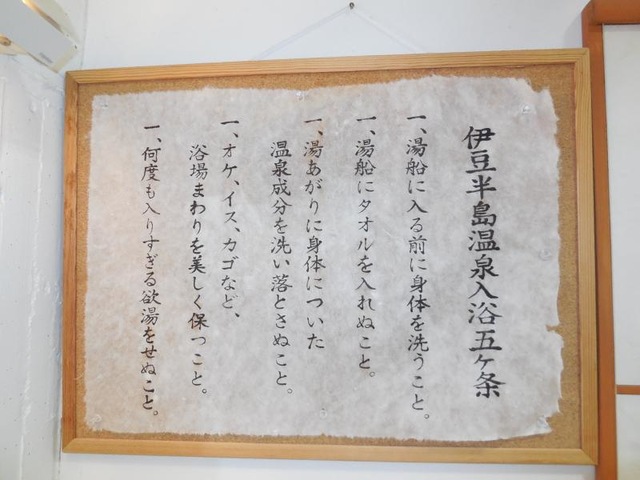 伊豆半島温泉入浴五ヶ条
一、湯船に入る前に身体を洗うこと。
一、湯船にタオルを入れぬこと。
一、湯あがりに身体についた
温泉成分を洗い落とさぬこと。
一、オケ、イス、カゴなど、
浴場まわりを美しく保つこと。
一、何度も入りすぎる欲湯をせぬこと。